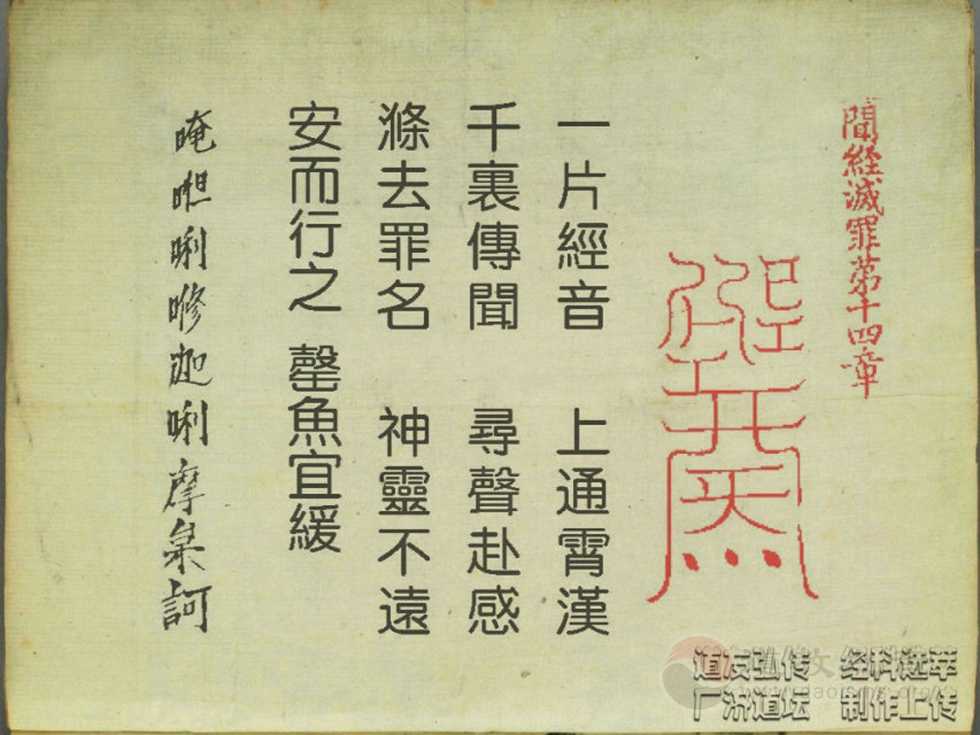 聞経滅罪第十四章
一片經音 上通霄漢
千裏傳聞 尋聲赴感
滌去罪名 神靈不遠
安而行之 罄魚宜緩
唵呾唎哆迦唎摩梟訶
道友弘传 经科选萃
广济道坛 制作上传